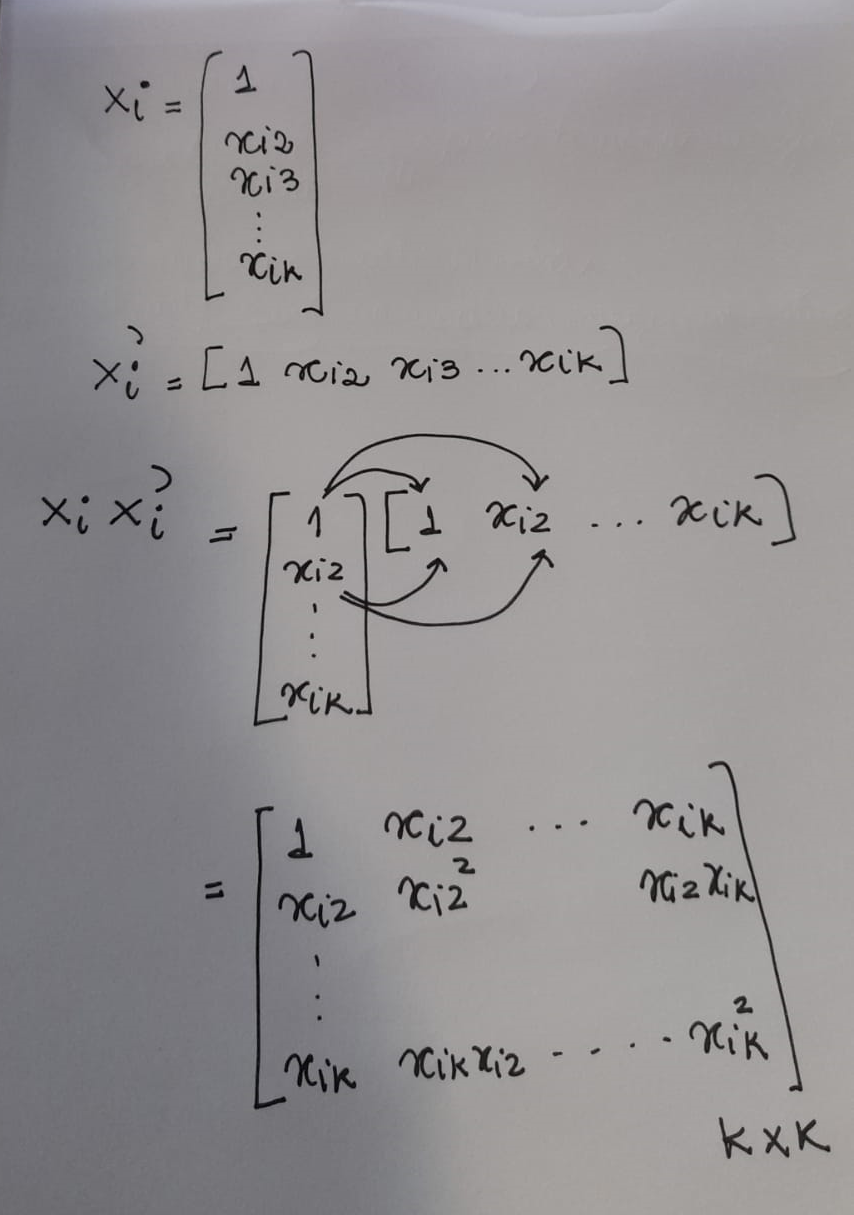 xi = [ 1
xi2
xi3
⋮
xik ]
xi' = [1 xi2 xi3 ... xik]
xi xi' = [ 1 [1 xi2 ... xik]
xi2
⋮
xik ]
= [ 1 xi2 ... xik
xi2 xi2² xi2xik
⋮
xik xikxi2 ..... xik² ]
k×k